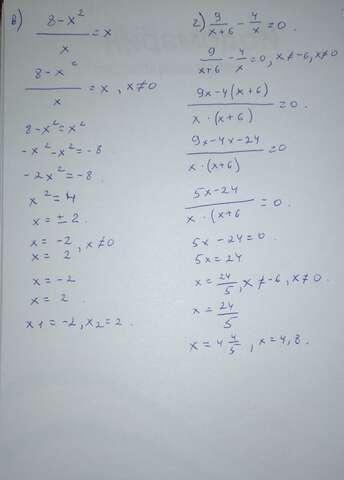 в) (8-x²)/x = x
(8-x²)/x = x, x≠0
8-x²=x²
-x²-x²=-8
-2x²=-8.
x²=4
x=±2.
x=-2, x≠0
x=2
x=-2
x=2.
x1=-2, x2=2.
г) 9/(x+6) - 4/x =0.
9/(x+6) - 4/x =0, x≠-6, x≠0
(9x-4(x+6))/(x·(x+6)) =0.
(9x-4x-24)/(x·(x+6)) =0
(5x-24)/(x·(x+6 =0.
5x-24=0.
5x=24
x=24/5, x≠-6, x≠0.
x=24/5
x=4 4/5, x=4,8.